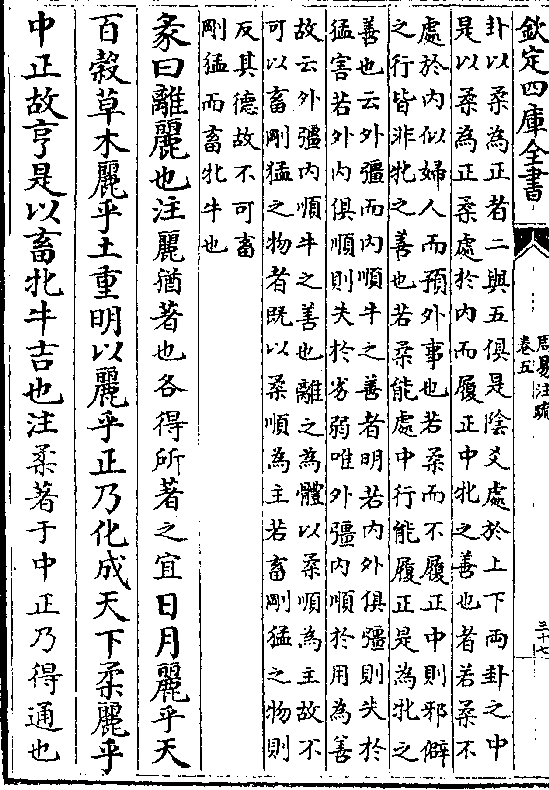 欽定四庫全書
周易注疏
卷五
三十七
卦以柔為正者二與五俱是陰爻處於上下兩卦之中
是以柔為正柔處於內而履正中牝之善也者若柔不
處於內似婦人而預外事也若柔而不履正中則邪僻
之行皆非牝之善也若柔能處中行能履正是為牝之
善也云外彊而內順牛之善者明若內外俱彊則失於
猛害若外內俱順則失於劣弱唯外彊內順於用為善
故云外彊內順牛之善也離之為體以柔順為主故不
可以畜剛猛之物者既以柔順為主若畜剛猛之物則
反其德故不可畜
剛猛而畜牝牛也
彖曰離麗也注麗猶著也各得所著之宜日月麗乎天
百榖草木麗乎土重明以麗乎正乃化成天下柔麗乎
中正故亨是以畜牝牛吉也注柔著于中正乃得通也